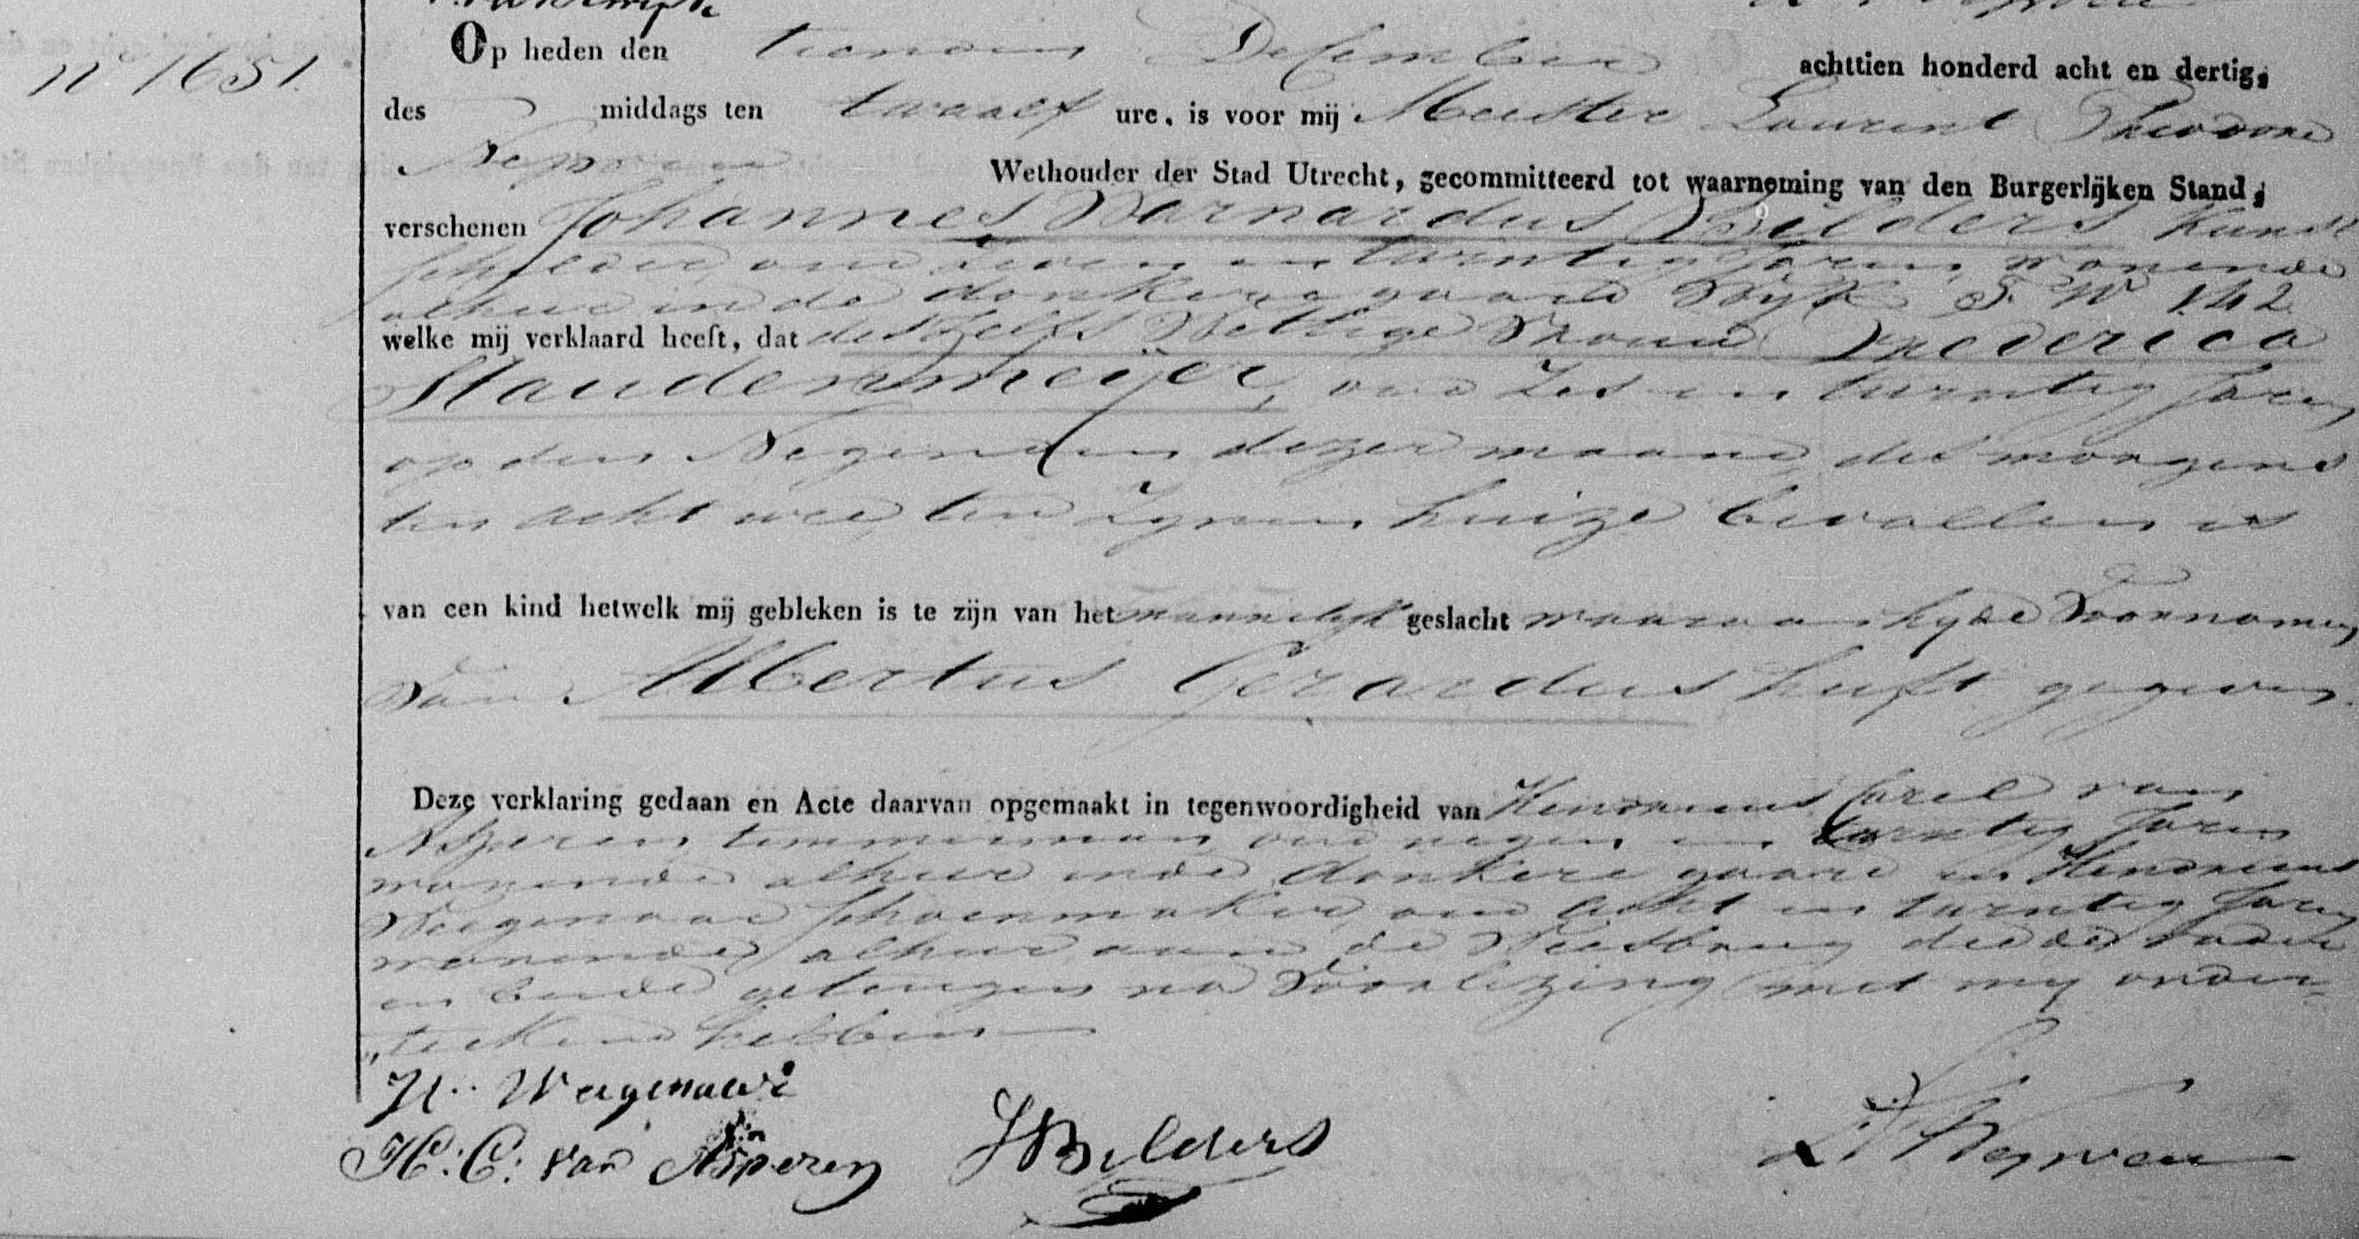 N° 1651.
Op heden den tienden December achttien honderd acht en dertig,
des middags ten twaalf ure, is voor mij Meester Laurent Theodore
Nepveu Wethouder der Stad Utrecht, gecommitteerd tot waarneming van den Burgerlijken Stand,
verschenen Johannes Warnardus Bilders Kunst
schilder, oud zeven en twintig Jaren, wonende
alhier in de donkere gaard Wijk F. N° 142
welke mij verklaard heeft, dat deszelfs Wettige Vrouw Frederica
Staudenmeijer, oud zes en twintig Jaren
op den Negenden dezer maand, des morgens
ten acht ure, ten zijnen huize bevallen is
van een kind hetwelk mij gebleken is te zijn van het mannelijk geslacht waaraan hij de Voornamen
van Albertus Gerardus heeft gegeven.
Deze verklaring gedaan en Acte daarvan opgemaakt in tegenwoordigheid van Hendricus Carel van
Asperen, timmerman, oud negen en twintig Jaren
wonende alhier in de donkere gaard en Hendricus
Weegenaar schoenmaker, oud acht en twintig Jaren
wonende alhier aan de Weesbrug die de vader
en beide getuigen na Voorlezing met mij onder-
"teekend hebben
H. Weegenaar
H: C: van Asperen JWBilders LTNepveu